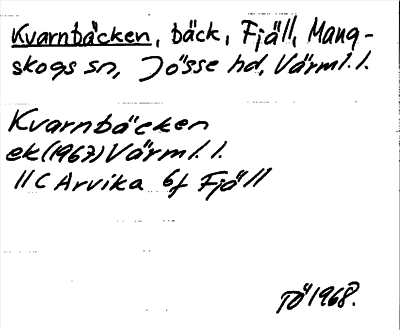 Kvarnbäcken, bäck, Fjäll, Mang-
skogs sn, Jösse hd, Värml. l.
Kvarnbäcken
ek (1967) Värml. l.
11 C Arvika 6f Fjäll
TÖ 1968.